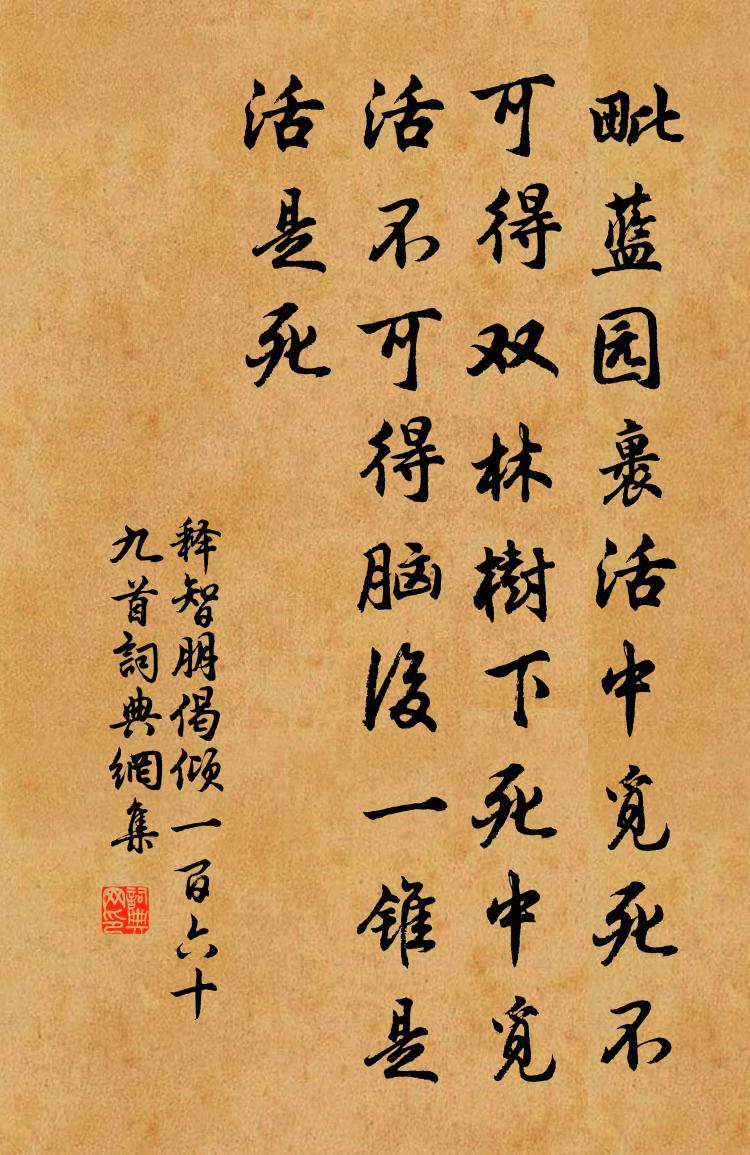 毗蓝园裹活中觅死不
可得双林樹下死中觅
活不可得脑後一锥是
活是死
释智朋偈倾一百六十
九首詞典網集
詞典
网印